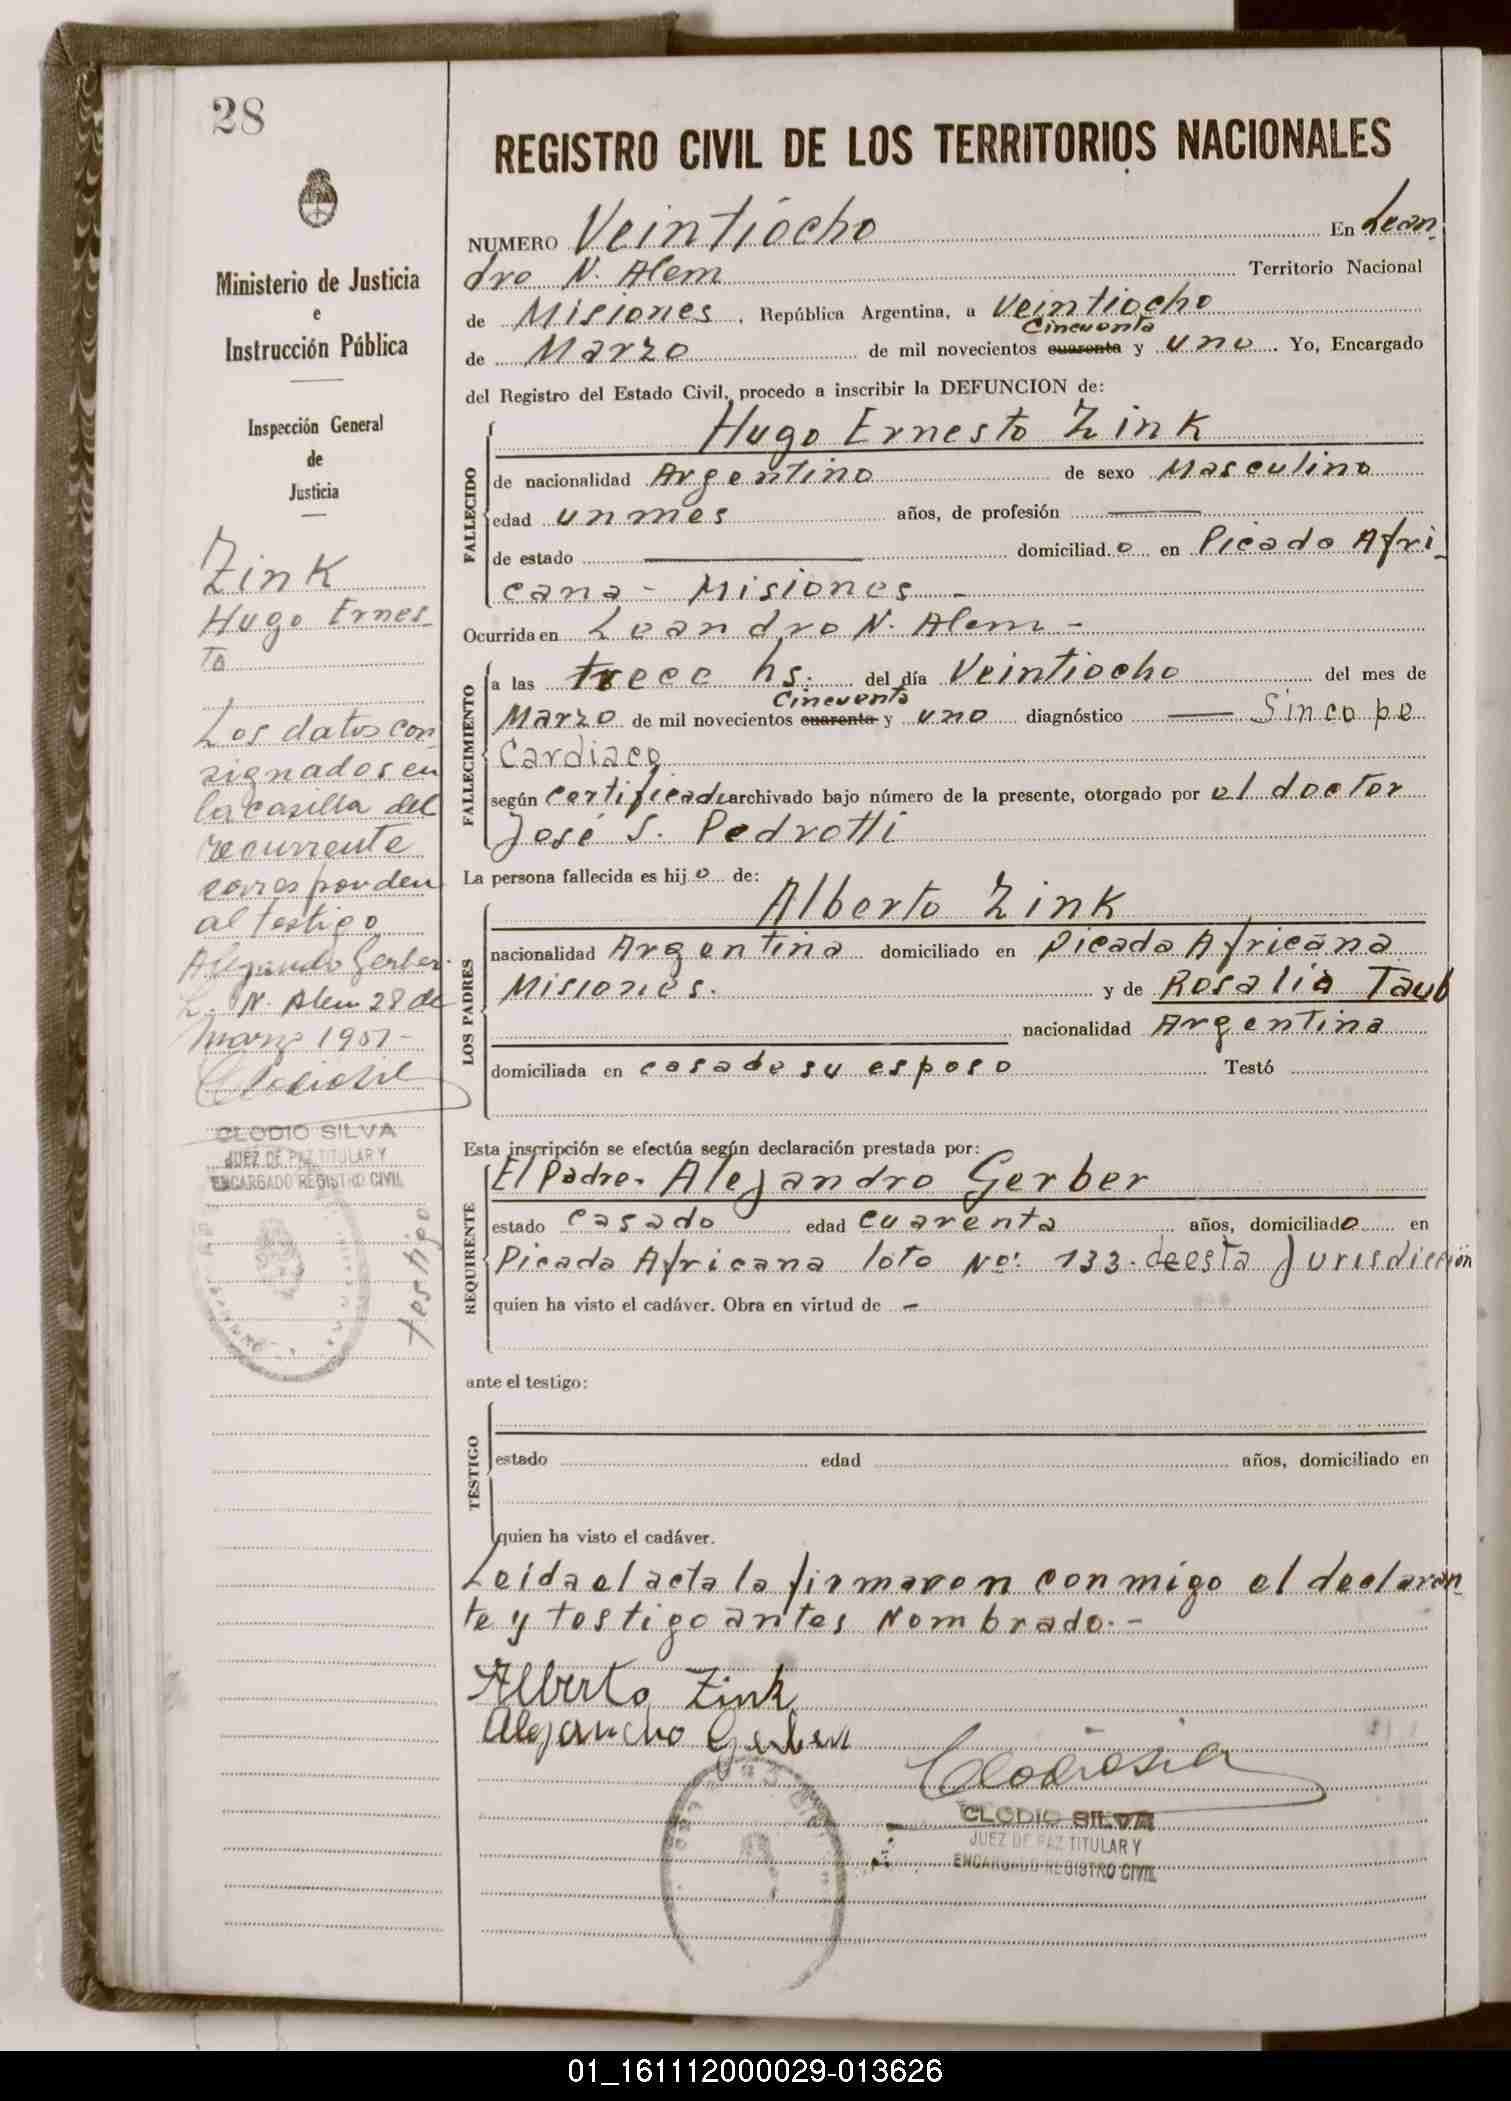 28
Ministerio de Justicia
e
Instrucción Pública
Inspección General
de
Justicia
Zink
Hugo Ernes-
to
Los datos con-
signados en
la casilla del
recurrente
corresponden
al testigo
Alejandro Gerber.
L. N. Alem 28 de
marzo 1951-
CLODIO SILVA
JUEZ DE PAZ TITULAR Y
ENCARGADO REGISTRO CIVIL
testigo
REGISTRO CIVIL DE LOS TERRITORIOS NACIONALES
NUMERO Veintiocho En Lean-
dro N. Alem Territorio Nacional
de Misiones, República Argentina, a Veintiocho
Cincuenta
de Marzo de mil novecientos cuarenta y uno. Yo, Encargado
del Registro del Estado Civil, procedo a inscribir la DEFUNCION de:
FALLECIDO
Hugo Ernesto Zink
de nacionalidad Argentino de sexo Masculino
edad un mes años, de profesión
de estado domiciliado en Picada Afri-
cana - Misiones -
Ocurrida en Leandro N. Alem -
FALLECIMIENTO
a las trece hs. del día Veintiocho del mes de
Cincuenta
Marzo de mil novecientos cuarenta y uno diagnóstico Sincope
Cardiaco
según certificado archivado bajo número de la presente, otorgado por el doctor
José S. Pedrotti
La persona fallecida es hijo de:
LOS PADRES
Alberto Zink
nacionalidad Argentina domiciliado en Picada Africana
Misiones. y de Rosalia Taub
nacionalidad Argentina
domiciliada en casa de su esposo Testó
Esta inscripción se efectúa según declaración prestada por:
REQUIRENTE
El Padre. Alejandro Gerber
estado casado edad cuarenta años, domiciliado en
Picada Africana lote No: 133. de esta Jurisdicción
quien ha visto el cadáver. Obra en virtud de -
ante el testigo:
TESTIGO
estado edad años, domiciliado en
quien ha visto el cadáver.
Leida el acta la firmaron conmigo el declaran-
te y testigo antes nombrado.-
Alberto Zink
Alejandro Gerber
CLODIO SILVA
JUEZ DE PAZ TITULAR Y
ENCARGADO REGISTRO CIVIL
01_161112000029-013626